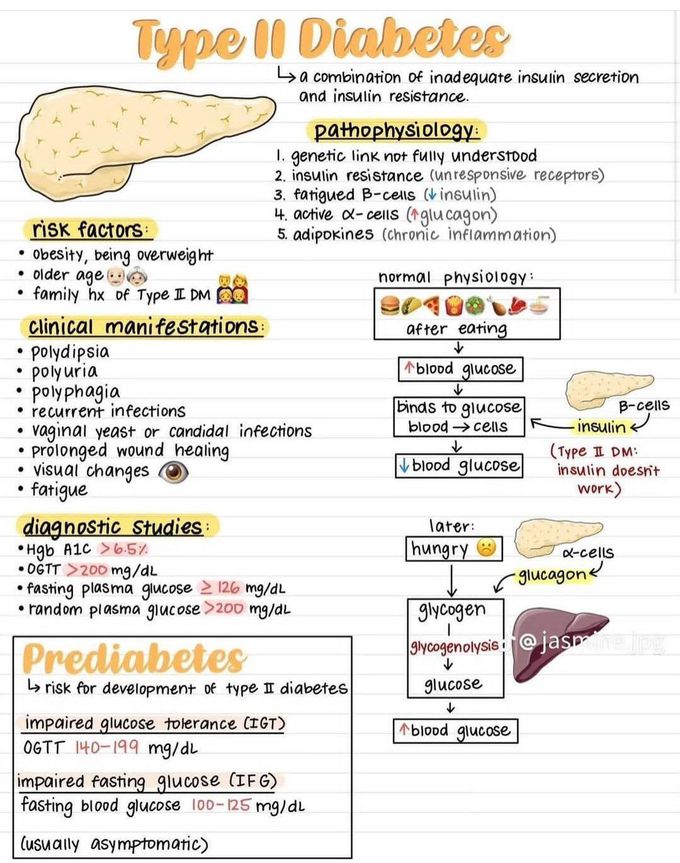 Type II Diabetes
↳ a combination of inadequate insulin secretion
and insulin resistance.
pathophysiology:
1. genetic link not fully understood
2. insulin resistance (unresponsive receptors)
3. fatigued B-cells (↓insulin)
4. active α-cells (↑glucagon)
5. adipokines (chronic inflammation)
risk factors:
• obesity, being overweight
• older age 👴👵
• family hx of Type II DM 👨‍👩‍👧‍👦
clinical manifestations:
• polydipsia
• polyuria
• polyphagia
• recurrent infections
• vaginal yeast or candidal infections
• prolonged wound healing
• visual changes 👁
• fatigue
diagnostic studies:
• Hgb A1C >6.5%
• OGTT >200 mg/dL
• fasting plasma glucose ≥ 126 mg/dL
• random plasma glucose >200 mg/dL
Prediabetes
↳ risk for development of type II diabetes
impaired glucose tolerance (IGT)
OGTT 140-199 mg/dL
impaired fasting glucose (IFG)
fasting blood glucose 100-125 mg/dL
(usually asymptomatic)
normal physiology:
after eating
↓
↑blood glucose
↓
binds to glucose
blood → cells
↓
↓blood glucose
B-cells
insulin
(Type II DM:
insulin doesn't
work)
later:
hungry ☹
α-cells
glucagon
↓
glycogen
glycogenolysis
↓
glucose
↓
↑blood glucose
@jasmine.jpg